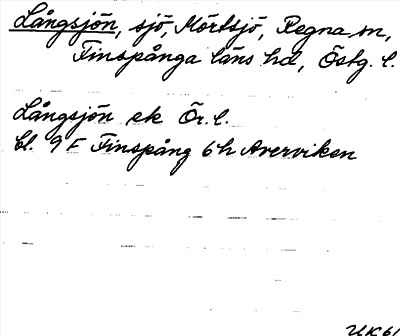 Långsjön, sjö, Mörtsjö, Regna sn,
Finspånga läns hd, Östg. l.
Långsjön ek Ör. l.
bl. 9 F Finspång 6h Averviken
UK61